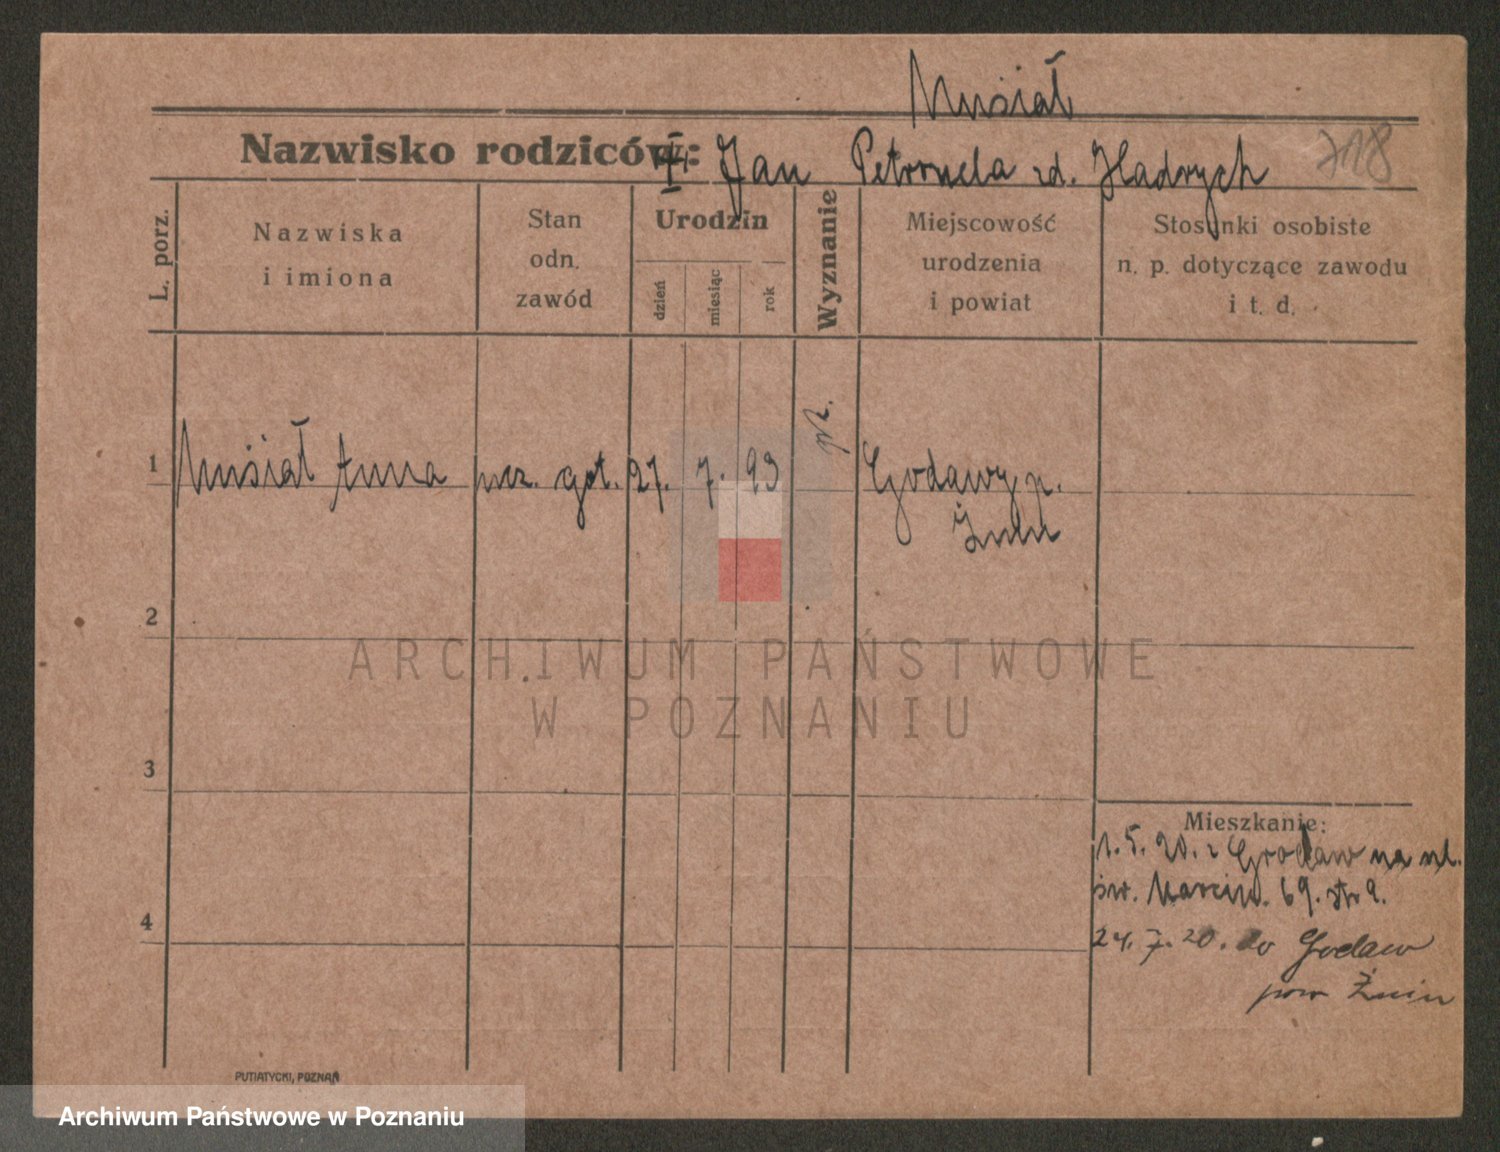 Musiał
Nazwisko rodziców: Jan Petronela zd. Hadrych
718
L. porz.
Nazwiska
i imiona
Stan
odn.
zawód
Urodzin
dzień
miesiąc
rok
Wyznanie
Miejscowość
urodzenia
i powiat
Stosunki osobiste
n. p. dotyczące zawodu
i t. d.
1 Musiał Anna ucz. got. 27. 7. 93 Godawy, p.
Żnin
2
ARCHIWUM PAŃSTWOWE
W POZNANIU
3
Mieszkanie:
1. 5. 20. z Godaw na ul.
św. Marcin. 69.
4
24. 7. 20. do Godaw
pow Żnin
PUTIATYCKI, POZNAŃ
Archiwum Państwowe w Poznaniu